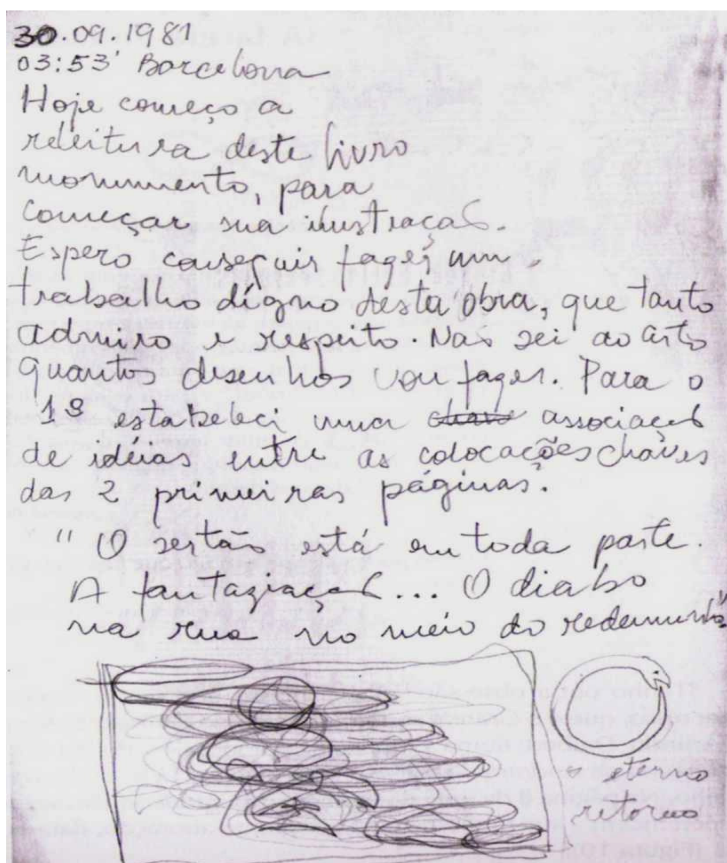 30.09.1981
03:53' Barcelona
Hoje começo a
releitura deste livro
monumento, para
começar sua ilustração.
Espero conseguir fazer um
trabalho digno desta obra, que tanto
admiro e respeito. Não sei ao certo
quantos desenhos vou fazer. Para o
1º estabeleci uma chave associação
de idéias entre as colocações chaves
das 2 primeiras páginas.
" O sertão está em toda parte.
A fantaziação... O diabo
na rua no meio do redemunho"
o eterno
retorno